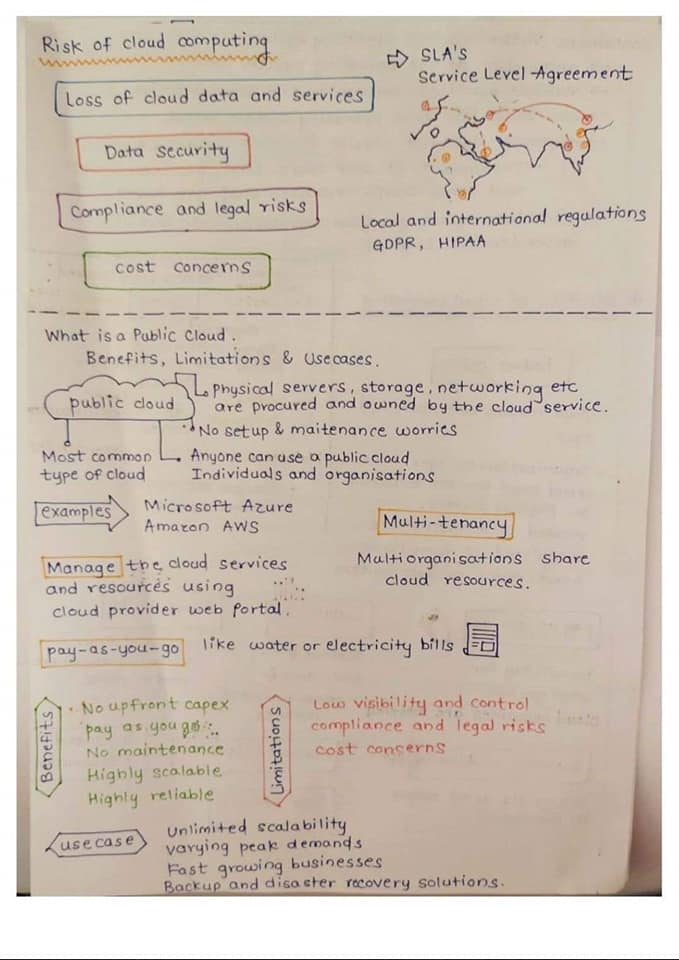 Risk of cloud computing
Loss of cloud data and services
Data security
Compliance and legal risks
cost concerns
SLA's
Service Level Agreement
Local and international regulations
GDPR, HIPAA
What is a Public Cloud.
Benefits, Limitations & Usecases.
public cloud
Physical servers, storage, networking etc
are procured and owned by the cloud service.
No setup & maitenance worries
Most common
type of cloud
Anyone can use a public cloud
Individuals and organisations
examples
Microsoft Azure
Amazon AWS
Multi-tenancy
Multi organisations share
cloud resources.
Manage the cloud services
and resources using
cloud provider web portal.
pay-as-you-go like water or electricity bills
Benefits
No upfront capex
pay as you go
No maintenance
Highly scalable
Highly reliable
Limitations
Low visibility and control
compliance and legal risks
cost concerns
usecase
Unlimited scalability
varying peak demands
Fast growing businesses
Backup and disaster recovery solutions.